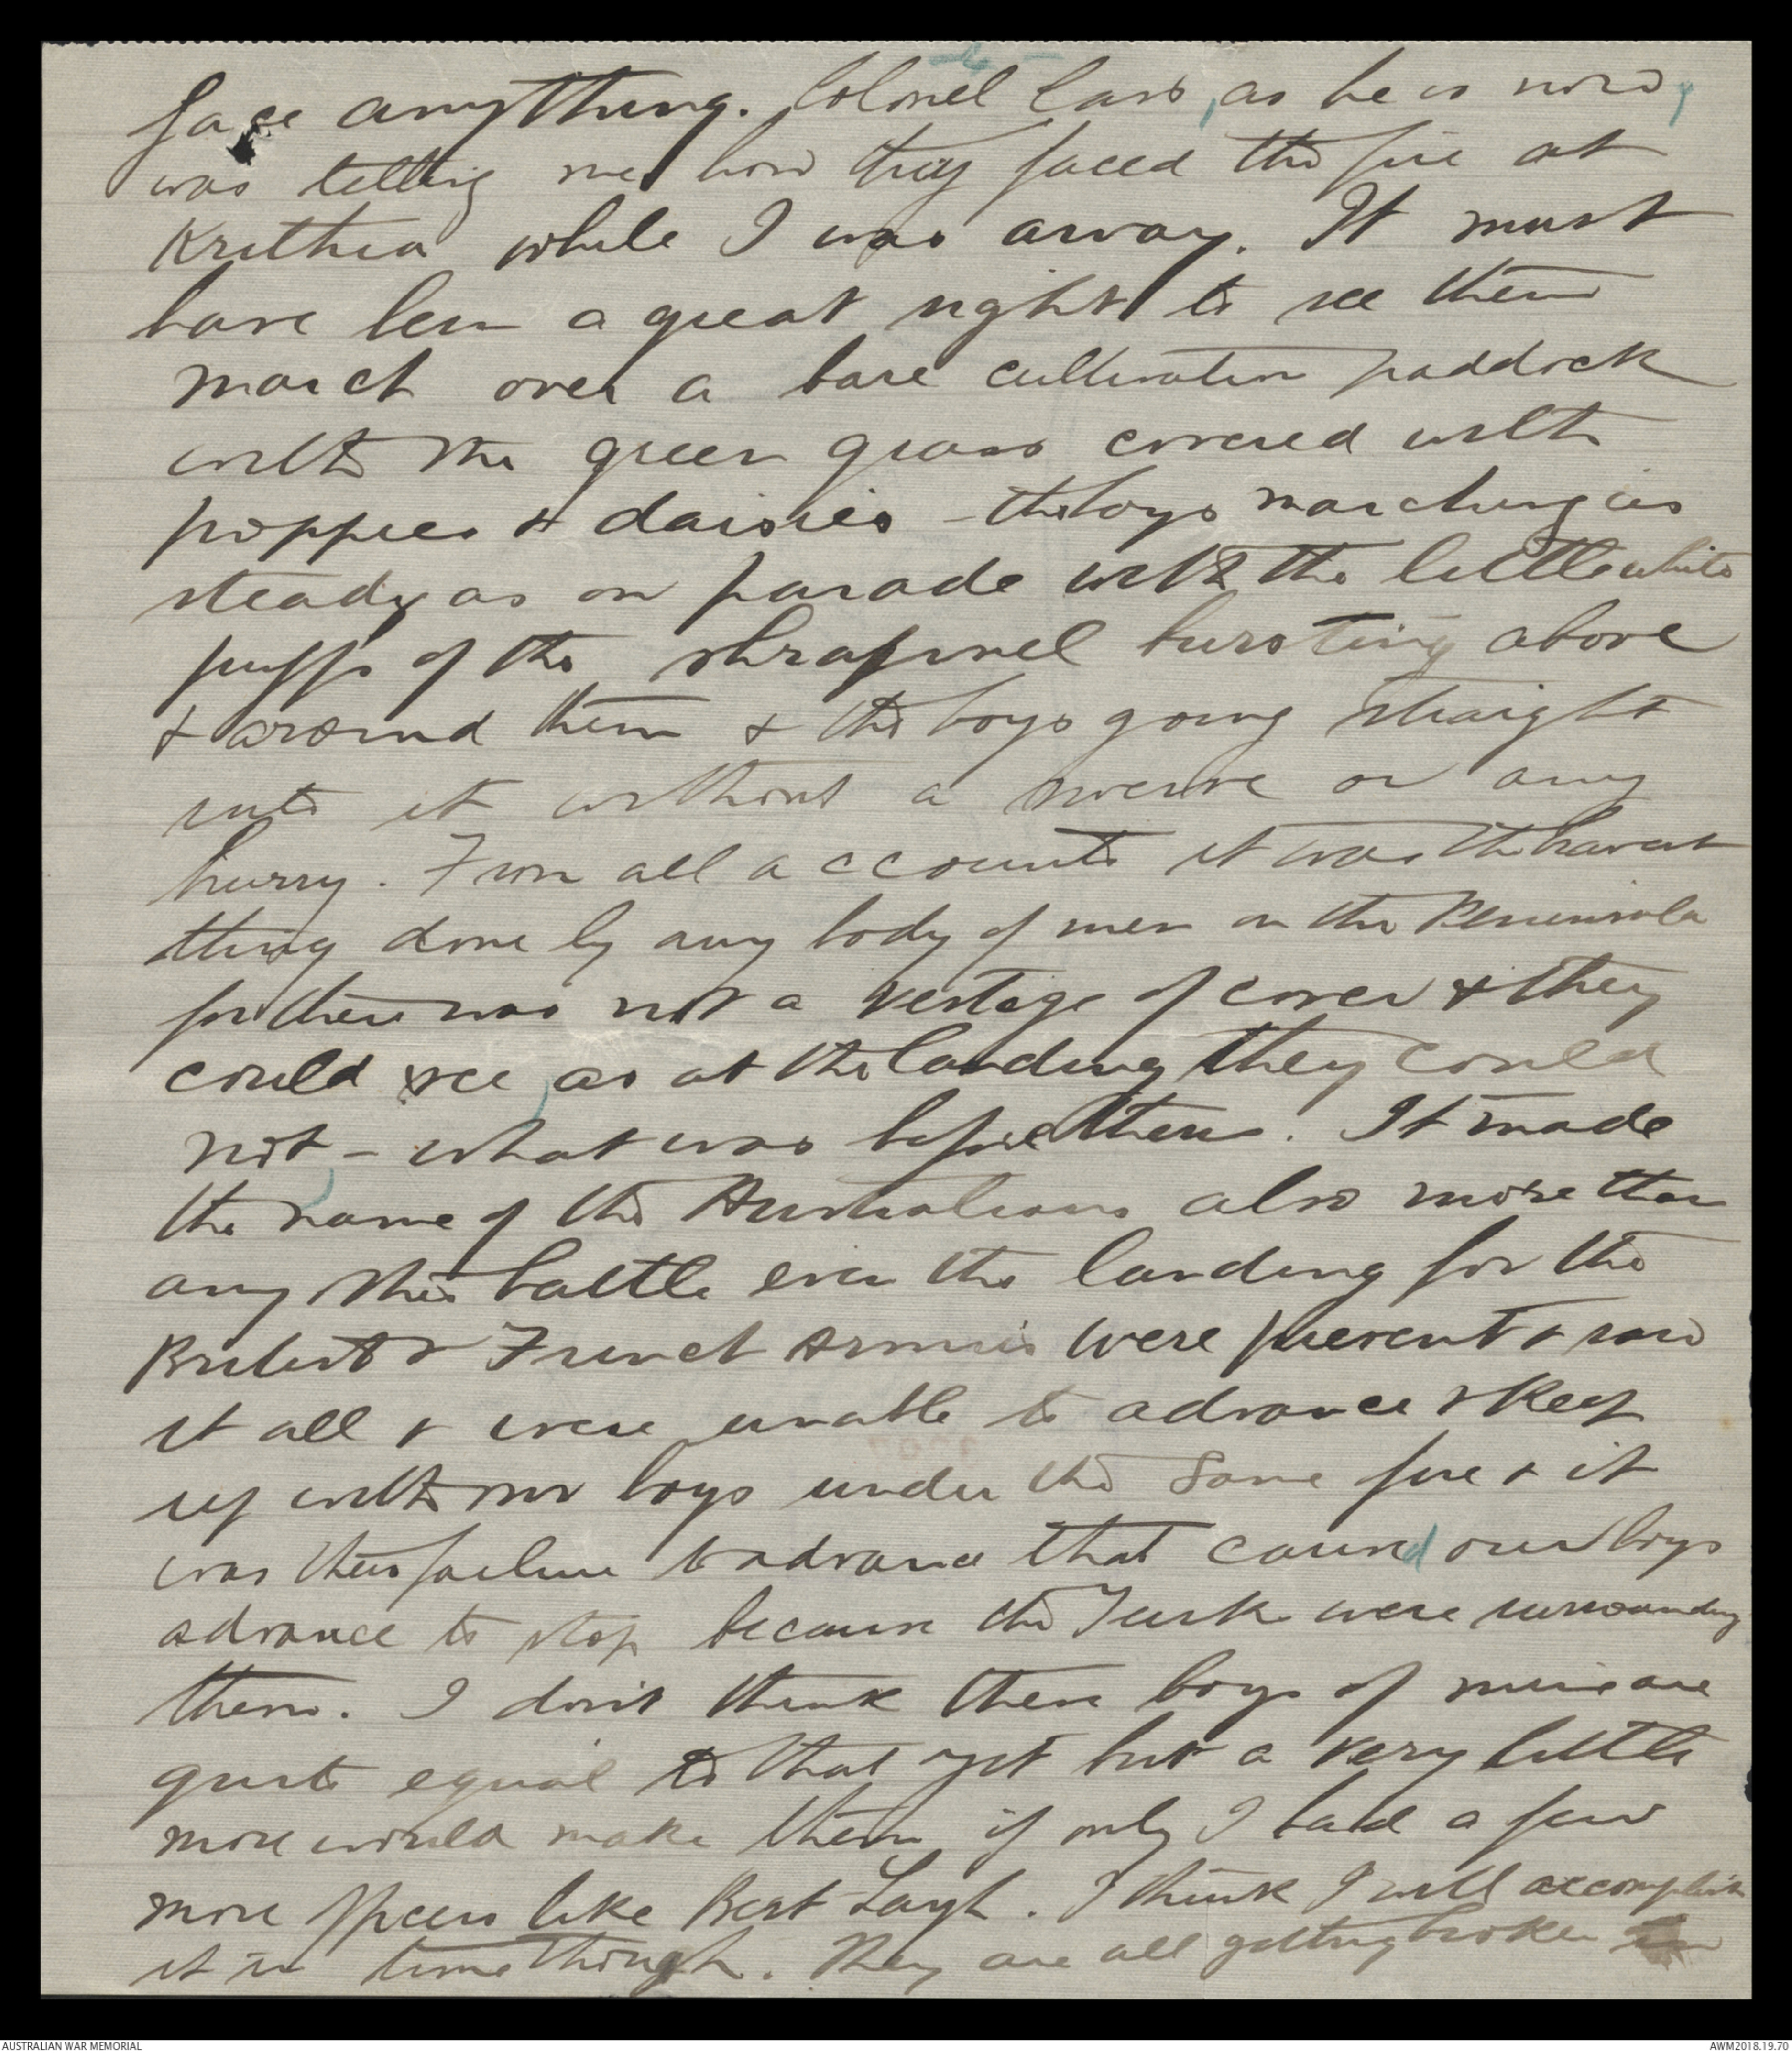 face anything. Colonel Cass, as he is now,
was telling me how they faced the fire at
Krithia while I was away. It must
have been a great sight to see them
march over a bare cultivation paddock
with the green grass covered with
poppies & daisies - the boys marching as
steady as on parade with the little white
puffs of the shrapnel bursting above
& around them & the boys going straight
into it without a swerve or any
hurry. From all accounts it was the bravest
thing done by any body of men on the Peninsula
for there was not a vestage of cover & they
could see, as at the landing they could
not, - what was before them. It made
the name of the Australians also more than
any other battle even the landing for the
British & French Armies were present & saw
it all & were unable to advance & keep
up with our boys under the same fire & it
was their failure to advance that caused our boys
advance to stop because the Turk were surrounding
them. I don't think these boys of mine are
quite equal to that yet but a very little
more would make them if only I had a few
more officers like Bert Layh. I think I will accomplish
it in time though. They are all getting broken in
AUSTRALIAN WAR MEMORIAL
AWM2018.19.70